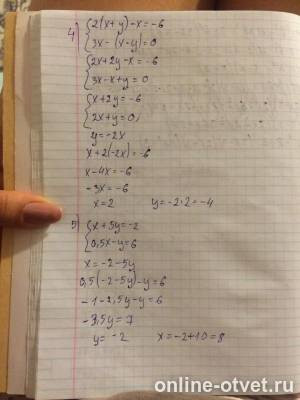 4) { 2(x+y)-x=-6
3x-(x-y)=0
{ 2x+2y-x=-6
3x-x+y=0
{ x+2y=-6
2x+y=0;
y=-2x
x+2(-2x)=-6
x-4x=-6
-3x=-6
x=2 y=-2·2=-4
5) { x+5y=-2
0,5x-y=6
x=-2-5y
0,5(-2-5y)-y=6
-1-2,5y-y=6
-3,5y=7
y=-2 x=-2+10=8
online-otvet.ru